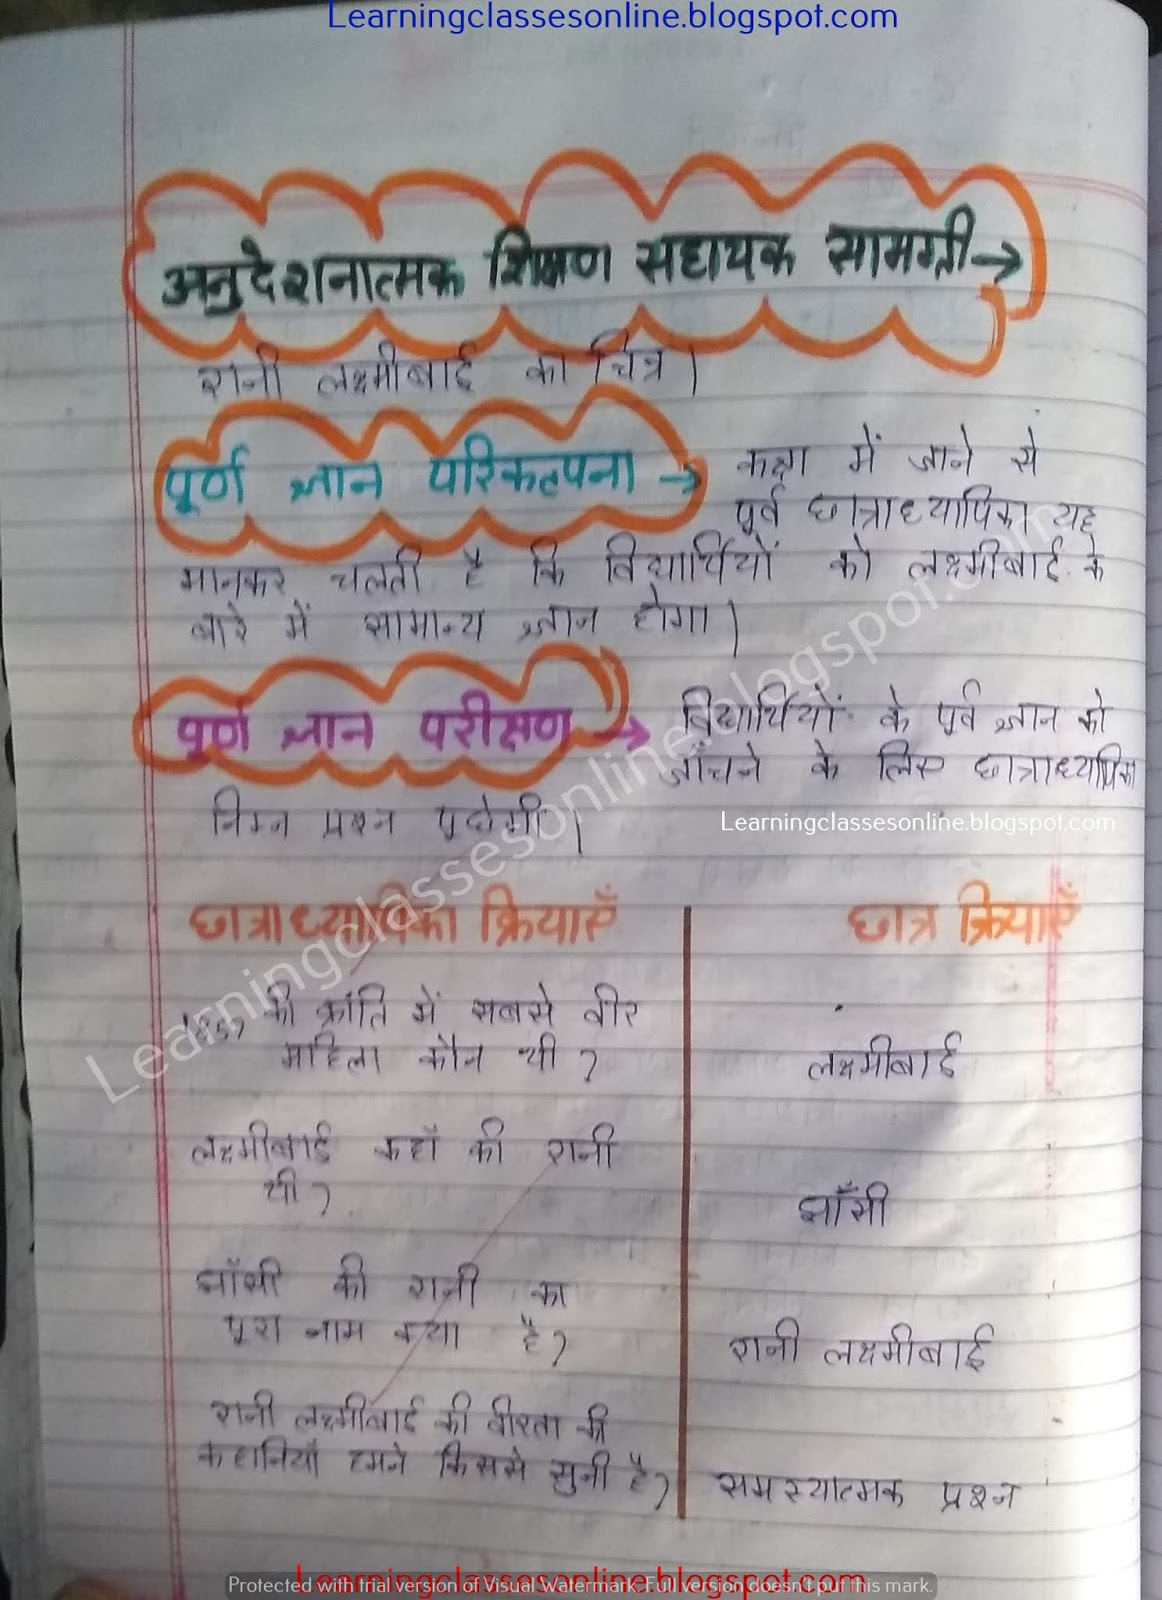 Learningclassesonline.blogspot.com
अनुदेशनात्मक शिक्षण सहायक सामग्री→
रानी लक्ष्मीबाई का चित्र।
पूर्ण ज्ञान परिकल्पना → कक्षा में जाने से
पूर्व छात्राध्यापिका यह
मानकर चलती है कि विद्यार्थियों को लक्ष्मीबाई के
बारे में सामान्य ज्ञान होगा।
पूर्ण ज्ञान परीक्षण → विद्यार्थियों के पूर्व ज्ञान को
जाँचने के लिए छात्राध्यापिका
निम्न प्रश्न पूछेगी।
Learningclassesonline.blogspot.com
Learningclassesonline.blogspot.com
छात्राध्यापिका क्रियाएँ छात्र क्रियाएँ
1857 की क्रांति में सबसे वीर
महिला कौन थी ? लक्ष्मीबाई
लक्ष्मीबाई कहाँ की रानी
थी ? झाँसी
झाँसी की रानी का
पूरा नाम क्या है ? रानी लक्ष्मीबाई
रानी लक्ष्मीबाई की वीरता की
कहानियाँ हमने किससे सुनी है ? समस्यात्मक प्रश्न
Learningclassesonline.blogspot.com
Protected with trial version of Visual Watermark. Full version doesn't put this mark.